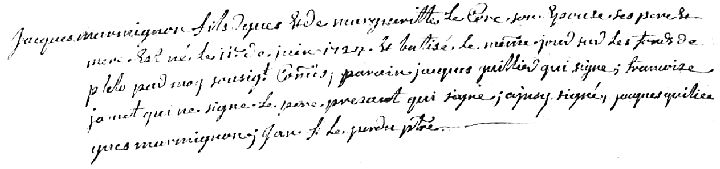 jacques murmignon fils d'yues Et de margueritte le Core son Epouse ses pere Et
mere Est né le 15e de juin 1727 Et batisé le même jour sur les fonds de
plelo par moy sousigt Comis, parain jacques quillier qui signe, francoise
jamet qui ne signe le pere present qui signe, ainsy signé, jacques quilier
yues murmignon, jan f. le pre